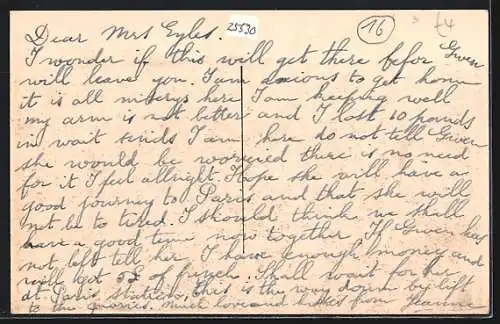 Dear Mrs Eyles. 25530 16 £4
I wonder if this will get there befor Gwen
will leave you. I am anxious to get hom
it is all miserys here I am keeping well
my arm is not better and I lost 10 pounds
in wait sinds I am here do not tell Gwen
she would be worryed there is no need
for it I feel allright. Hope she will have a
good journey to Paris and that she will
not be to tired. I should think we shall
have a good time now together If Gwen has
not left tell her I have enough money and
will get 5£ of. Shall wait for her
at Paris station, this is the way down by lift
to the. much love and kisses from Jeanne